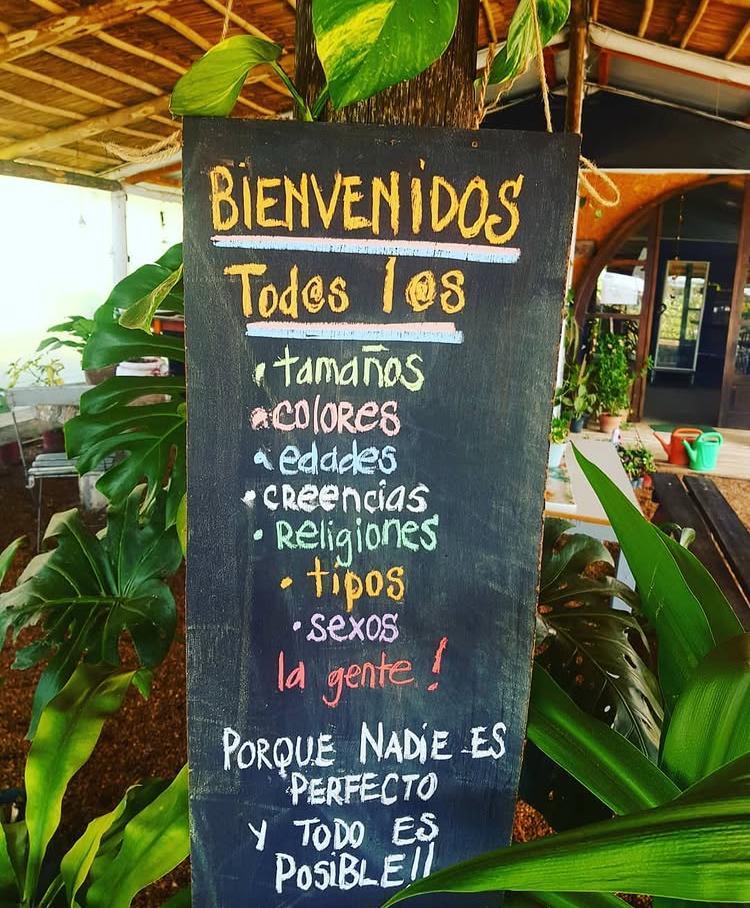 BIENVENIDOS
Tod@s l@s
• tamaños
• colores
• edades
• creencias
• Religiones
• tipos
• sexos
la gente!
PORQUE NADIE ES
PERFECTO
Y TODO ES
POSIBLE!!